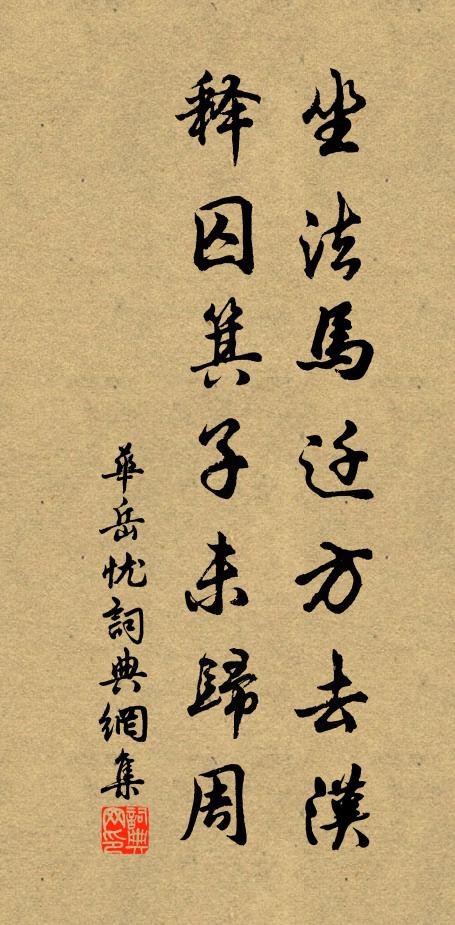 坐法馬迁方去漢
释囚箕子未歸周
華岳忧詞典網集
詞典网印